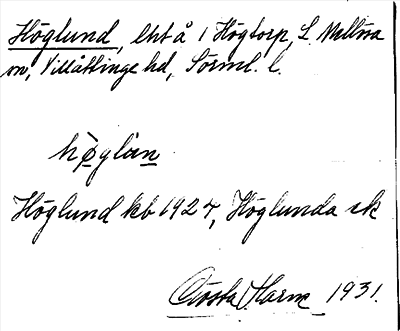 Höglund, lht å 1 Högtorp, L. Mellösa
sn, Villåttinge hd, Sörml. l.
høglùn
Höglund kb 1927, Höglunda ek
Gösta Harms 1931.